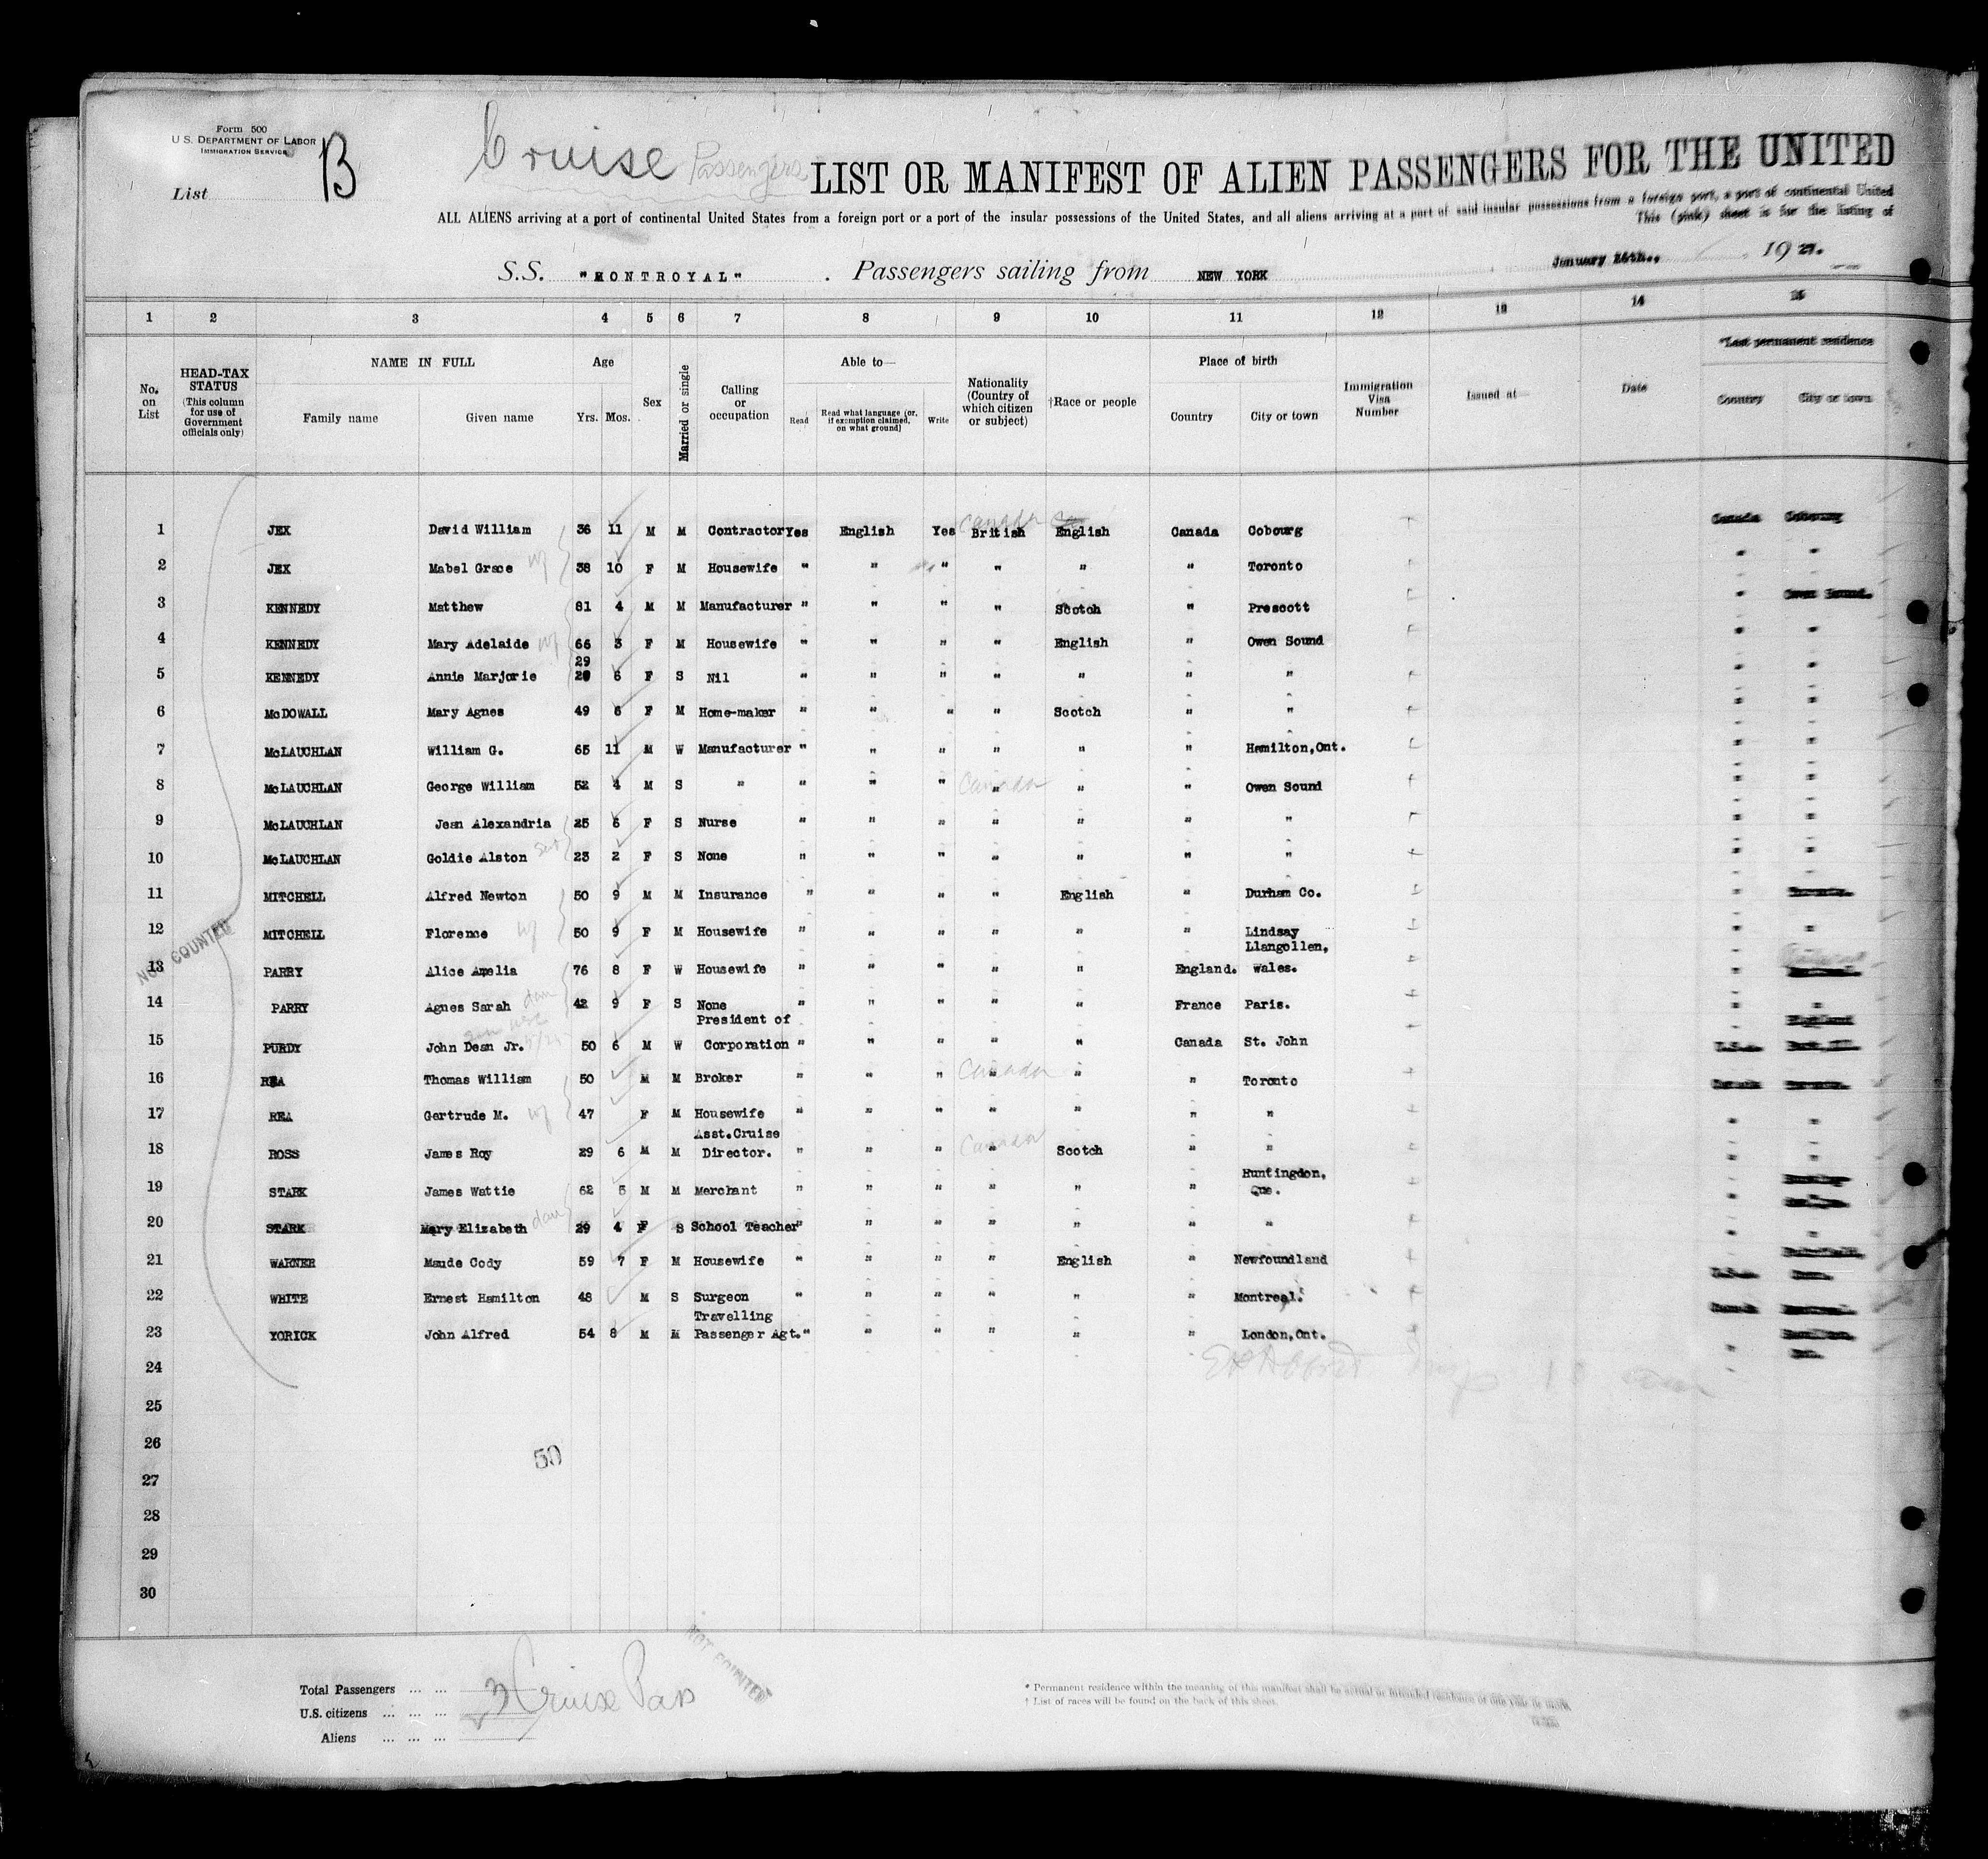 Form 500
U S. DEPARTMENT OF LABOR
IMMIGRATION SERVICE
List B
Cruise Passengers
LIST OR MANIFEST OF ALIEN PASSENGERS FOR THE UNITED
ALL ALIENS arriving at a port of continental United States from a foreign port or a port of the insular possessions of the United States, and all aliens arriving at a port of said insular possessions from a foreign port, a port of continental United
This (pink) sheet is for the listing of
S.S. "MONTROYAL" . Passengers sailing from NEW YORK January 19
1 2 3 4 5 6 7 8 9 10 11 12 13 14 15
No. on List
HEAD-TAX STATUS (This column for use of Government officials only)
NAME IN FULL Family name Given name
Age Yrs. Mos.
Sex
Married or single
Calling or occupation
Able to— Read Read what language [or, if exemption claimed, on what ground] Write
Nationality (Country of which citizen or subject)
†Race or people
Place of birth Country City or town
Immigration Visa Number
Issued at—
Date
*Last permanent residence Country City or town
1 JEX David William 36 11 M M Contractor Yes English Yes Canada British English Canada Cobourg Canada Cobourg
2 JEX Mabel Grace wf 38 10 F M Housewife " " " " " " Toronto " "
3 KENNEDY Matthew 81 4 M M Manufacturer " " " " Scotch " Prescott " Owen Sound.
4 KENNEDY Mary Adelaide wf 66 3 F M Housewife " " " " English " Owen Sound " "
29
5 KENNEDY Annie Marjorie 6 F S Nil " " " " " " " " "
6 McDOWALL Mary Agnes 49 6 F M Home-maker " " " " Scotch " " " "
7 McLAUCHLAN William G. 65 11 M W Manufacturer " " " " " " Hamilton,Ont. " "
8 McLAUCHLAN George William 52 4 M S " " " " Canada " " " Owen Sound " "
9 McLAUCHLAN Jean Alexandria 25 6 F S Nurse " " " " " " " " "
10 McLAUCHLAN Goldie Alston 23 2 F S None " " " " " " " " "
11 MITCHELL Alfred Newton 50 9 M M Insurance " " " " English " Durham Co. "
12 MITCHELL Florence wf 50 9 F M Housewife " " " " " " Lindsay " "
Llangollen,
13 PARRY Alice Amelia 76 8 F W Housewife " " " " " England. Wales. "
14 PARRY Agnes Sarah dau 42 9 F S None " " " " " France Paris. " "
President of
15 PURDY John Dean Jr. 50 6 M W Corporation " " " " " Canada St. John
16 REA Thomas William 50 M M Broker " " " Canada " " " Toronto Canada
17 REA Gertrude M. wf 47 F M Housewife " " " " " " " " "
Asst.Cruise
18 ROSS James Roy 29 6 M M Director. " " " Canada " Scotch " " " "
Huntingdon,
19 STARK James Wattie 62 5 M M Merchant " " " " " " Que.
20 STARK Mary Elizabeth dau 29 4 F S School Teacher " " " " " " "
21 WARNER Maude Cody 59 7 F M Housewife " " " " English " Newfoundland
22 WHITE Ernest Hamilton 48 M S Surgeon " " " " " " Montreal.
Travelling
23 YORICK John Alfred 54 8 M M Passenger Agt. " " " " " " London,Ont.
24
25
26
27
28
29
30
NOT COUNTED
50
NOT COUNTED
Total Passengers ... ...
U.S. citizens ... ... ...
Aliens ... ... ...
Cruise Pass
* Permanent residence within the meaning of this manifest shall be actual or intended residence of one year or more.
† List of races will be found on the back of this sheet.